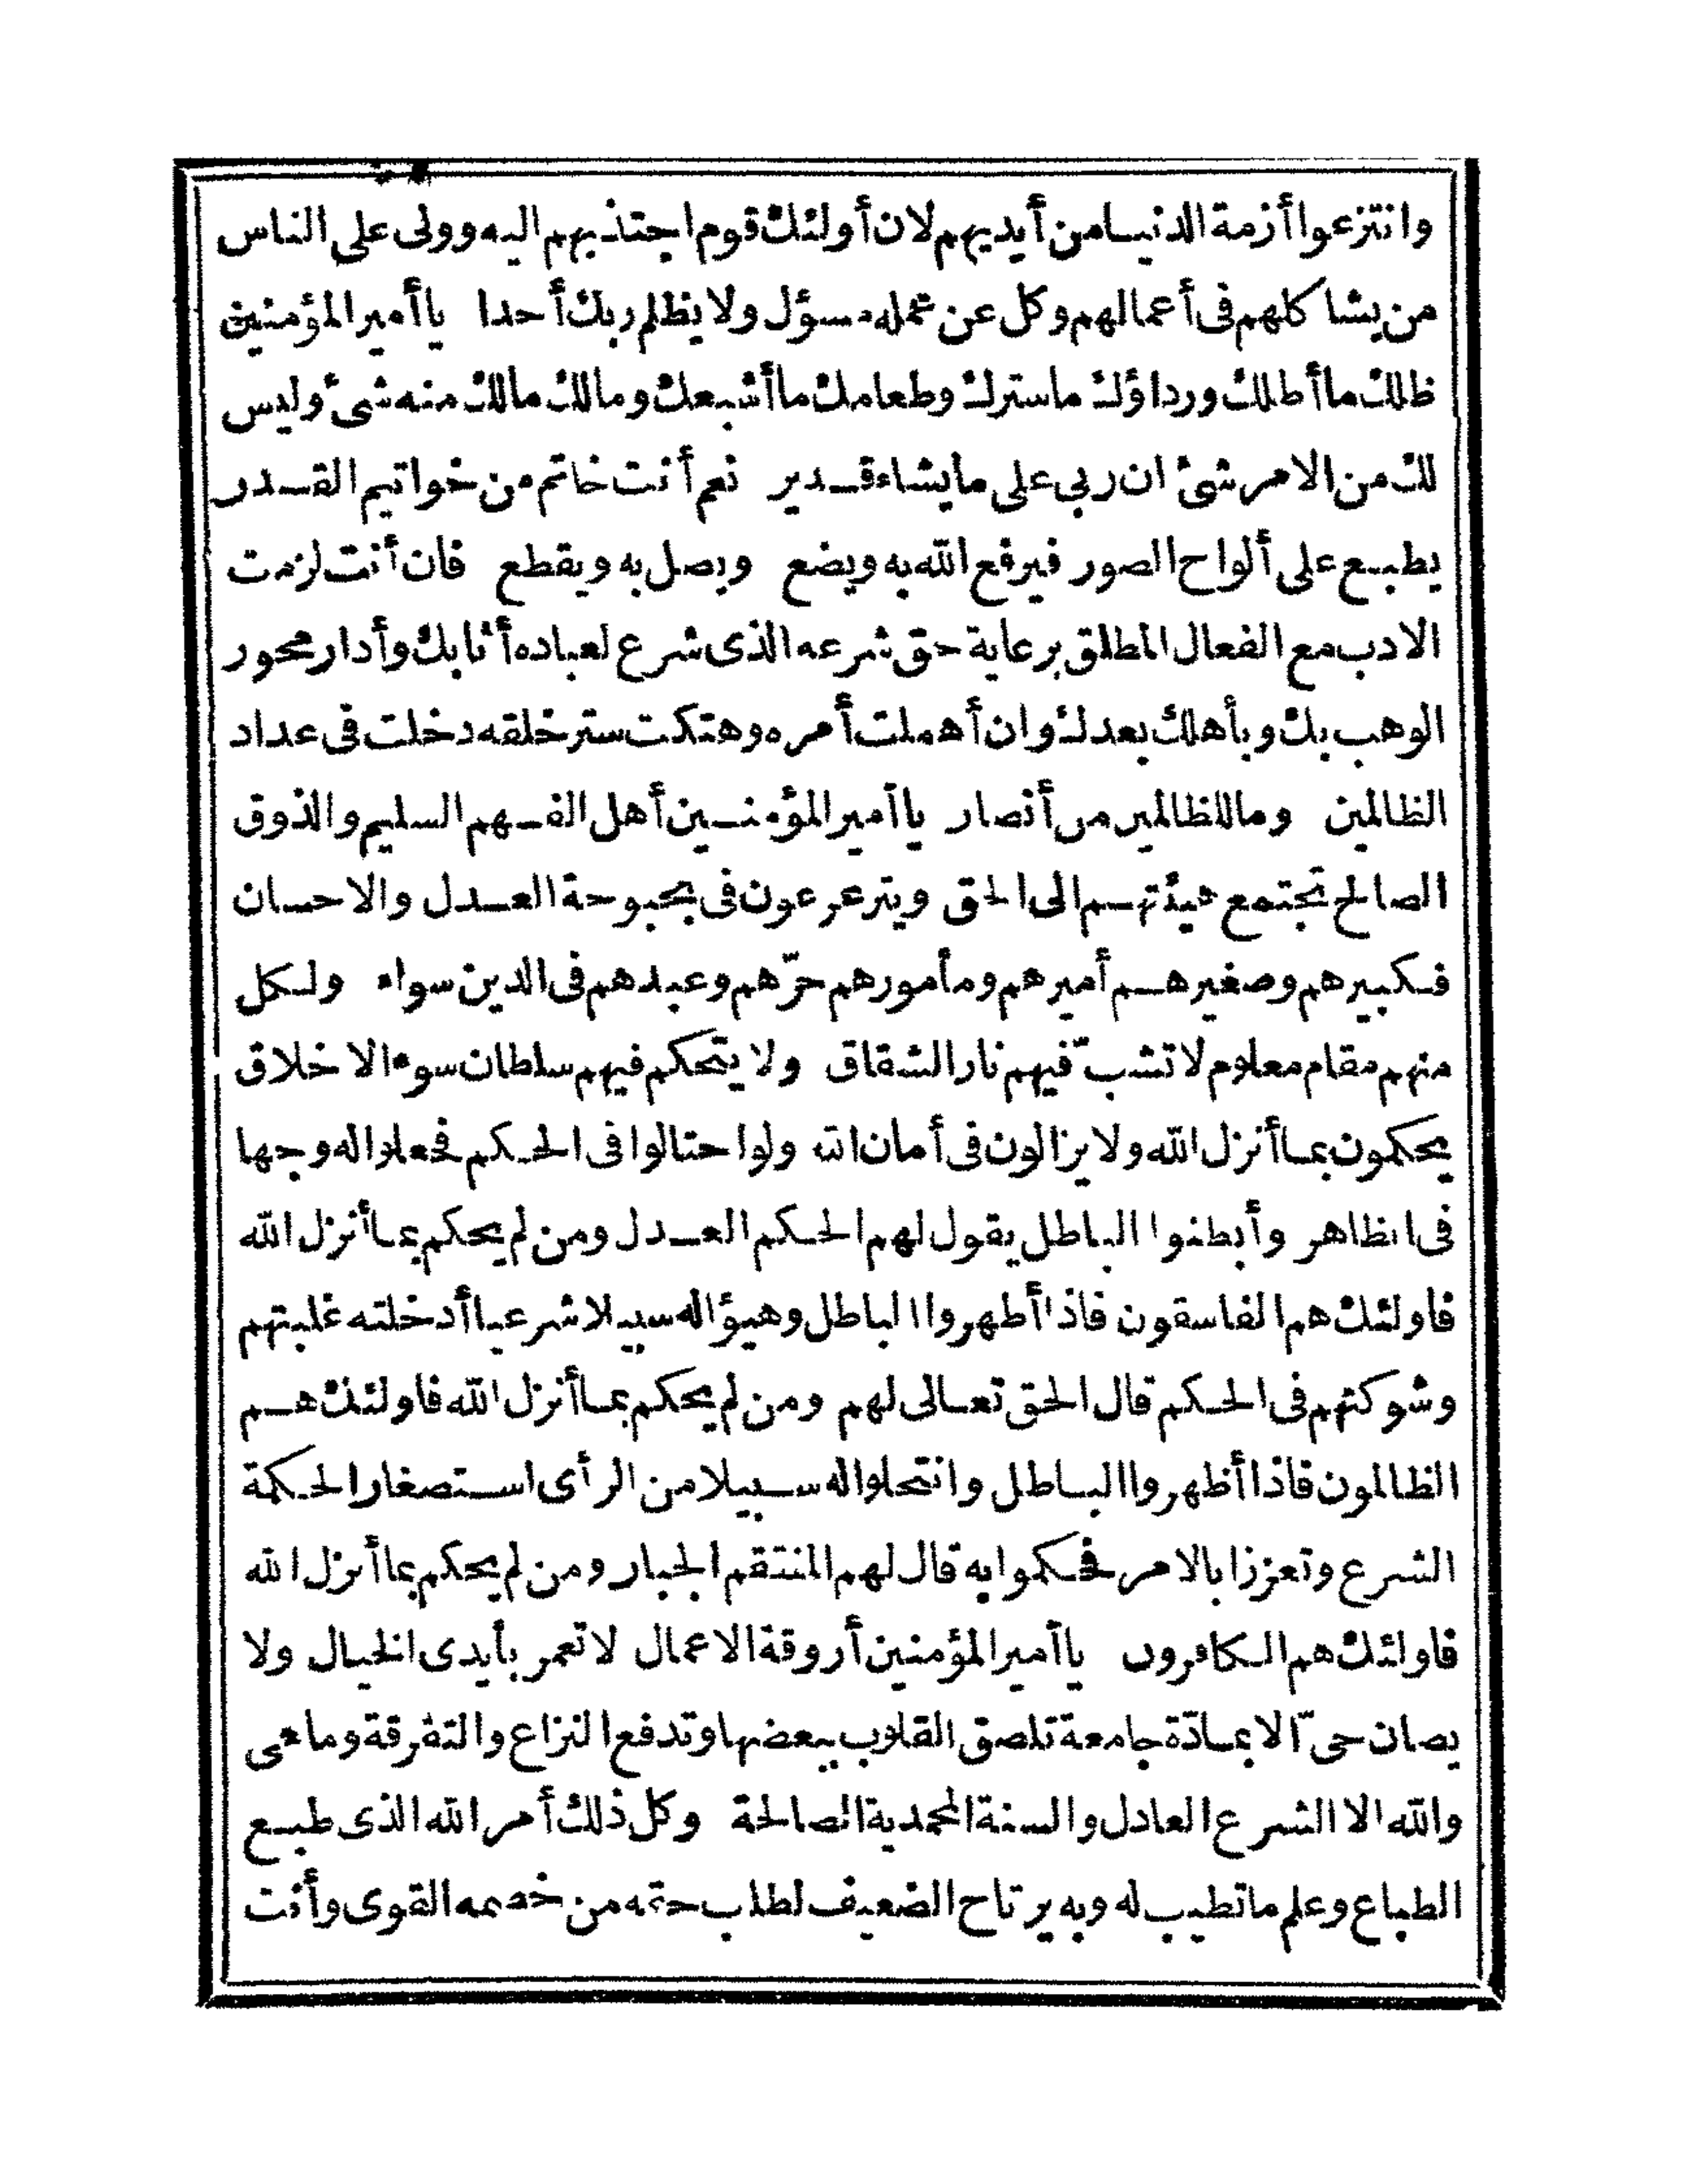 وانتزعوا أزمة الدنيا من أيديهم لان أولئك قوم اجتذبهم اليه وولى على الناس
من يشاكلهم فى أعمالهم وكل عن عمله مسؤل ولا يظلم ربك أحدا يا أمير المؤمنين
ظلك ما أظلك ورداؤك ما سترك وطعامك ما أشبعك ومالك مالك منه شئ وليس
لك من الامر شئ ان ربى على ما يشاء قدير نعم أنت خاتم من خواتيم القدر
يطبع على ألواح الصور فيرفع الله به ويضع ويصل به ويقطع فان أنت لزمت
الادب مع الفعال المطلق برعاية حق شرعه الذى شرع لعباده أثابك وأدار محور
الوهب بك وبأهلك بعدك وان أهملت أمره وهتكت ستر خلقه دخلت فى عداد
الظالمين وما للظالمين من أنصار يا أمير المؤمنين أهل الفهم السليم والذوق
الصالح تجتمع هيئتهم الى الحق ويترعرعون فى بحبوحة العدل والاحسان
فكبيرهم وصغيرهم أميرهم ومأمورهم حرّهم وعبدهم فى الدين سواء ولكل
منهم مقام معلوم لا تشبّ فيهم نار الشقاق ولا يتحكم فيهم سلطان سوء الاخلاق
يحكمون بما أنزل الله ولا يزالون فى أمان الله ولو احتالوا فى الحكم فجعلوا له وجها
فى الظاهر وأبطنوا الباطل يقول لهم الحكم العدل ومن لم يحكم بما أنزل الله
فاولئك هم الفاسقون فاذا أظهروا الباطل وهيؤاله سبيلا شرعيا أدخلته غلبتهم
وشوكتهم فى الحكم قال الحق تعالى لهم ومن لم يحكم بما أنزل الله فاولئك هم
الظالمون فاذا أظهروا الباطل وانتحلوا له سبيلا من الرأى استصغارا لحكمة
الشرع وتعززا بالامر فحكموا به قال لهم المنتقم الجبار ومن لم يحكم بما أنزل الله
فاولئك هم الكافرون يا أمير المؤمنين أروقة الاعمال لا تعمر بأيدى الخيال ولا
يصان حىّ الا بمادّة جامعة تلصق القلوب ببعضها وتدفع النزاع والتفرقة وما هى
والله الا الشرع العادل والسنة المحمدية الصالحة وكل ذلك أمر الله الذى طبع
الطباع وعلم ما تطيب له وبه يرتاح الضعيف لطلب حقه من خصمه القوى وأنت